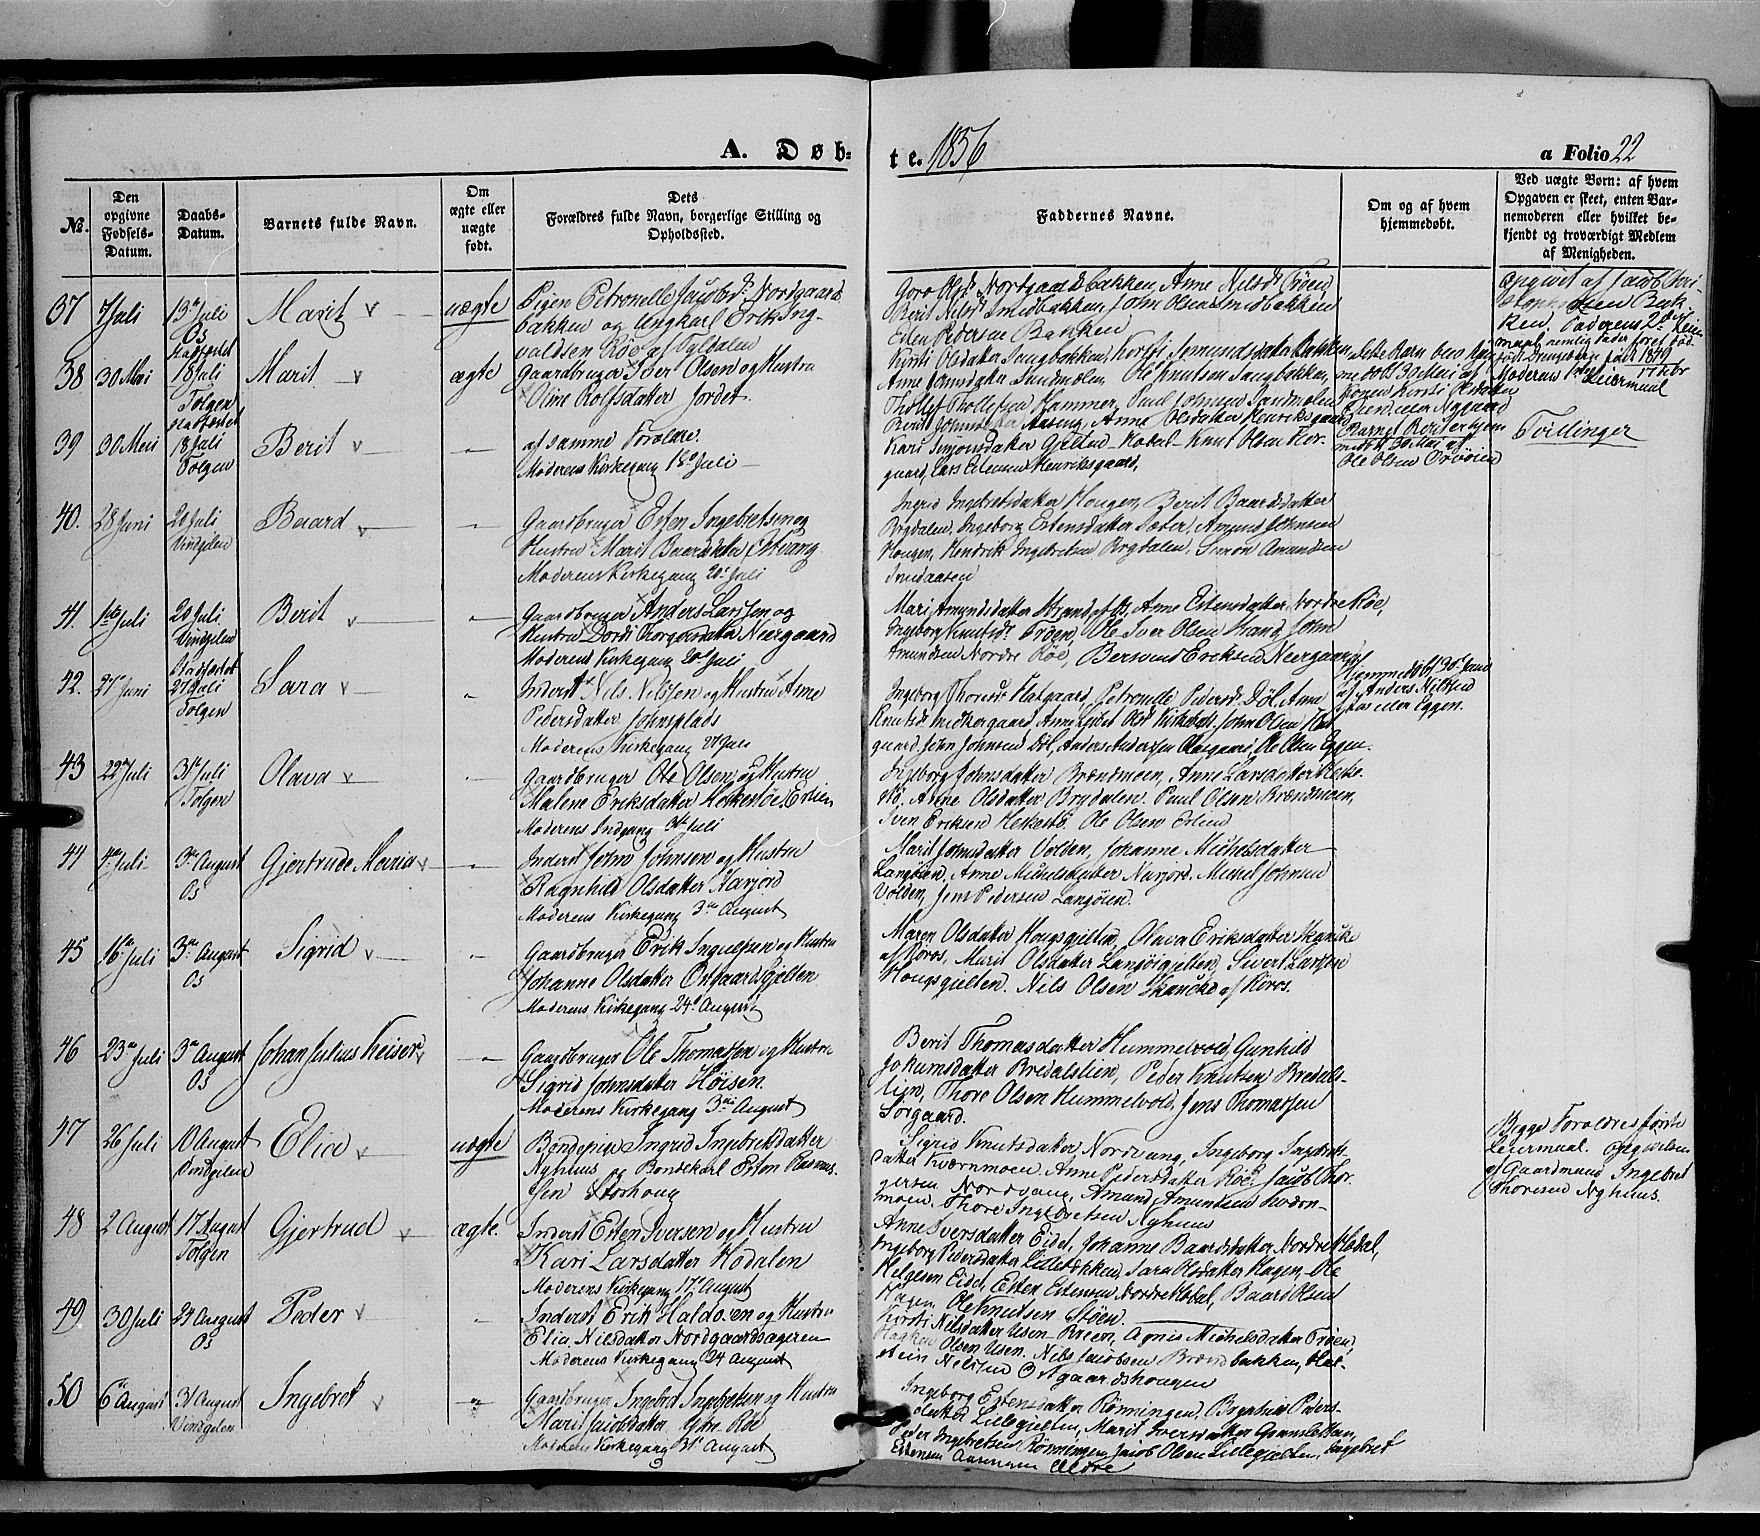 A. Døb:
te. 1856
a Folio 22
No.
Den opgivne Fødsels-Datum.
Daabs-Datum.
Barnets fulde Navn.
Om ægte eller uægte født.
Dets Forældres fulde Navn, borgerlige Stilling og Opholdssted.
Faddernes Navne.
Om og af hvem hjemmedøbt.
Ved uægte Børn: af hvem Opgaven er skeet, enten Barnemoderen eller hvilket bekjendt og troværdigt Medlem af Menigheden.
37 7 Juli 13de Juli Os Marit uægte
Pigen Petronelle Jacobsd. Nordgaards
bakken og Ungkarl Erik Ing-
valdsen Røe af Tyldalen
Goro Olsd. Nordgaardsbakken, Anne Nilsd. Trøen
Berit Nilsd. Smidbakken, John Olsen Smidbakken
Eden Pedersen Bakken
Opgivet af Jacob
38 30 Mai Stadfæstet 18 Juli Tolgen Marit ægte
Gaardbruger Iver Olsen og Hustru
Oline Rolfsdatter Jordet
Kirsti Olsdatter Haugbakken,
Ole Knutsen Haugbakken,
Thollef Thollefsen Hammer, Paul Johnsen Sandmoen
39 30 Mai Stadfæstet 18 Juli Tolgen Berit "
af samme Forældre.
Moderens Kirkegang 18de Juli
Anne Olsdatter Henriksgaard
gaard, Lars Estensen Henriksgaard,
Barnet Berit er hjem
medøbt 30 Mai af
Ole Olsen
Tvillinger
40. 28 Juni 20 Juli Vindgelen Baard "
Gaardbruger Esten Ingebretsen og
Hustru Marit Baardsdatter Estvang
Moderens Kirkegang 20de Juli
Ingrid Ingebretsdatter Hougen, Berit Baardsdatter
Brydalen, Ingeborg Estensdatter Sæter, Amund Johnsen
Hougen, Hendrik Ingebretsen Brydalen, Simon Amundsen
41. 1ste Juli 20 Juli Vindgelen Berit "
Gaardbruger Anders Larssen og
Hustru Dordi Thorgersdatter Neergaard
Moderens Kirkegang 20de Juli
Mari Amundsdatter Strand af Os, Anne Estensdatter Nordre Røe,
Ingeborg Knutsd. Trøen, Ole Iver Olsen Strand, John
Amundsen Nordre Røe, Bersvend Eriksen Neergaard
42. 27de Juni Stadfæstet 27 Juli Tolgen Sara "
Inderst Nils Nilssen og Hustru Anne
Pedersdatter Johnsplads
Moderens Kirkegang 27 Juli
Ingeborg Thoresd. Flatgaard, Petronelle Pedersd. Døl, Anne
gaard, John Johnsen Døl, Anders Anderssen, Ole Olsen Eggen.
Hjemmedøbt 30de Juni
af Anders Nilssen
43 22de Juli 31te Juli Tolgen Olava "
Gaardbruger Ole Olsen og Hustru
Malene Eriksdatter Heskestøe Erlien
Moderens Indgang 31te Juli
Ingeborg Johnsdatter Brændmoen, Anne Larsdatter Heske-
stø, Anne Olsdatter Brydalen. Paul Olsen Brændmoen,
Sven Eriksen Heskestø. Ole Olsen Erlien
44 4de Juli 3die August Os Gjertrude Maria "
Inderst John Johnsen og Hustru
Ragnhild Olsdatter Narjord
Moderens Kirkegang 3die August
Marit Johnsdatter Volden, Johanne Michelsdatter
Langøien, Anne Michelsdatter Narjord, Michel Johnsen
Volden, Jens Pedersen Langøien.
45 16de Juli 3die August Os Sigrid "
Gaardbruger Erik Ingulfsen og Hustru
Johanne Olsdatter Ortgaardsgjelten
Moderens Kirkegang 24de August
Maren Olsdatter Hougsgjelten, Olava Eriksdatter Skancke
af Røros, Marit Olsdatter Langøigjelten, Sivert Larssen
Hougsgjelten. Nils Olsen Skancke af Røros.
46 23de Juli 3die August Os Johan Julius Keiser "
Gaardbruger Ole Thomassen og Hustru
Sigrid Johnsdatter Høisen
Moderens Kirkegang 3die August
Berit Thomasdatter Hummelvold, Gunhild
Jokumsdatter Bredalslien, Peder Knutsen Bredals-
lien, Thore Olsen Hummelvold, Jens Thomassen
Sørgaard.
47 26 Juli 10 August Vindgelen Elia uægte
Bondepige Ingrid Ingebrigtsdatter
Nyhuus og Bondekarl Esten Rasmus-
sen Storhoug
Sigrid Knutsdatter Nordvang, Ingeborg Ingebrets-
datter Kværnmoen, Anne Pedersdatter Røe. Jacob Thor-
gersen Nordvang, Amund Amundsen Kværn-
moen. Thore Ingebretsen Nyhuus
Begge Forældres første
Leiermaal. Opgivelsen
af Gaardmand Ingebret
Thoresen Nyhuus.
48 2 August 17 August Tolgen Gjertrud ægte.
Inderst Esten Iversen og Hustru
Kari Larsdatter Hodalen
Moderens Kirkegang 17de August
Anne Iversdatter Eidet, Johanne Baardsdatter Nordre Hodal,
Ingeborg Pedersdatter Lillebakken, Sara Olsdatter Hagen, Ole
Helgesen Eidet, Esten Estensen Nordre Hodal, Baard Olsen
Hagen, Ole Knutsen Støen.
49 30 Juli 24 August Os Peder "
Inderst Erik Haldosen og Hustru
Elia Nilsdatter Nordgaardsageren
Moderens Kirkegang 24 August
Kirsti Nilsdatter Usen, Agnis Michelsdatter Trøen,
Haagen Olsen Usen. Nils Jacobsen Brændbakken, Hal-
stein Nilssen Ortgaardshougen
50 6te August 31 August Vindgelen Ingebret "
Gaardbruger Ingebret Ingebretsen og Hustru
Marit Jacobsdatter Ytre Røe
Moderens Kirkegang 31te August
Ingeborg Estensdatter Rønningen, Brynhild Peders-
datter Lillegjelten, Marit Iversdatter
Peder Ingebretsen Rønningen, Jacob Olsen Lillegjelten, Ingebret
Estensen